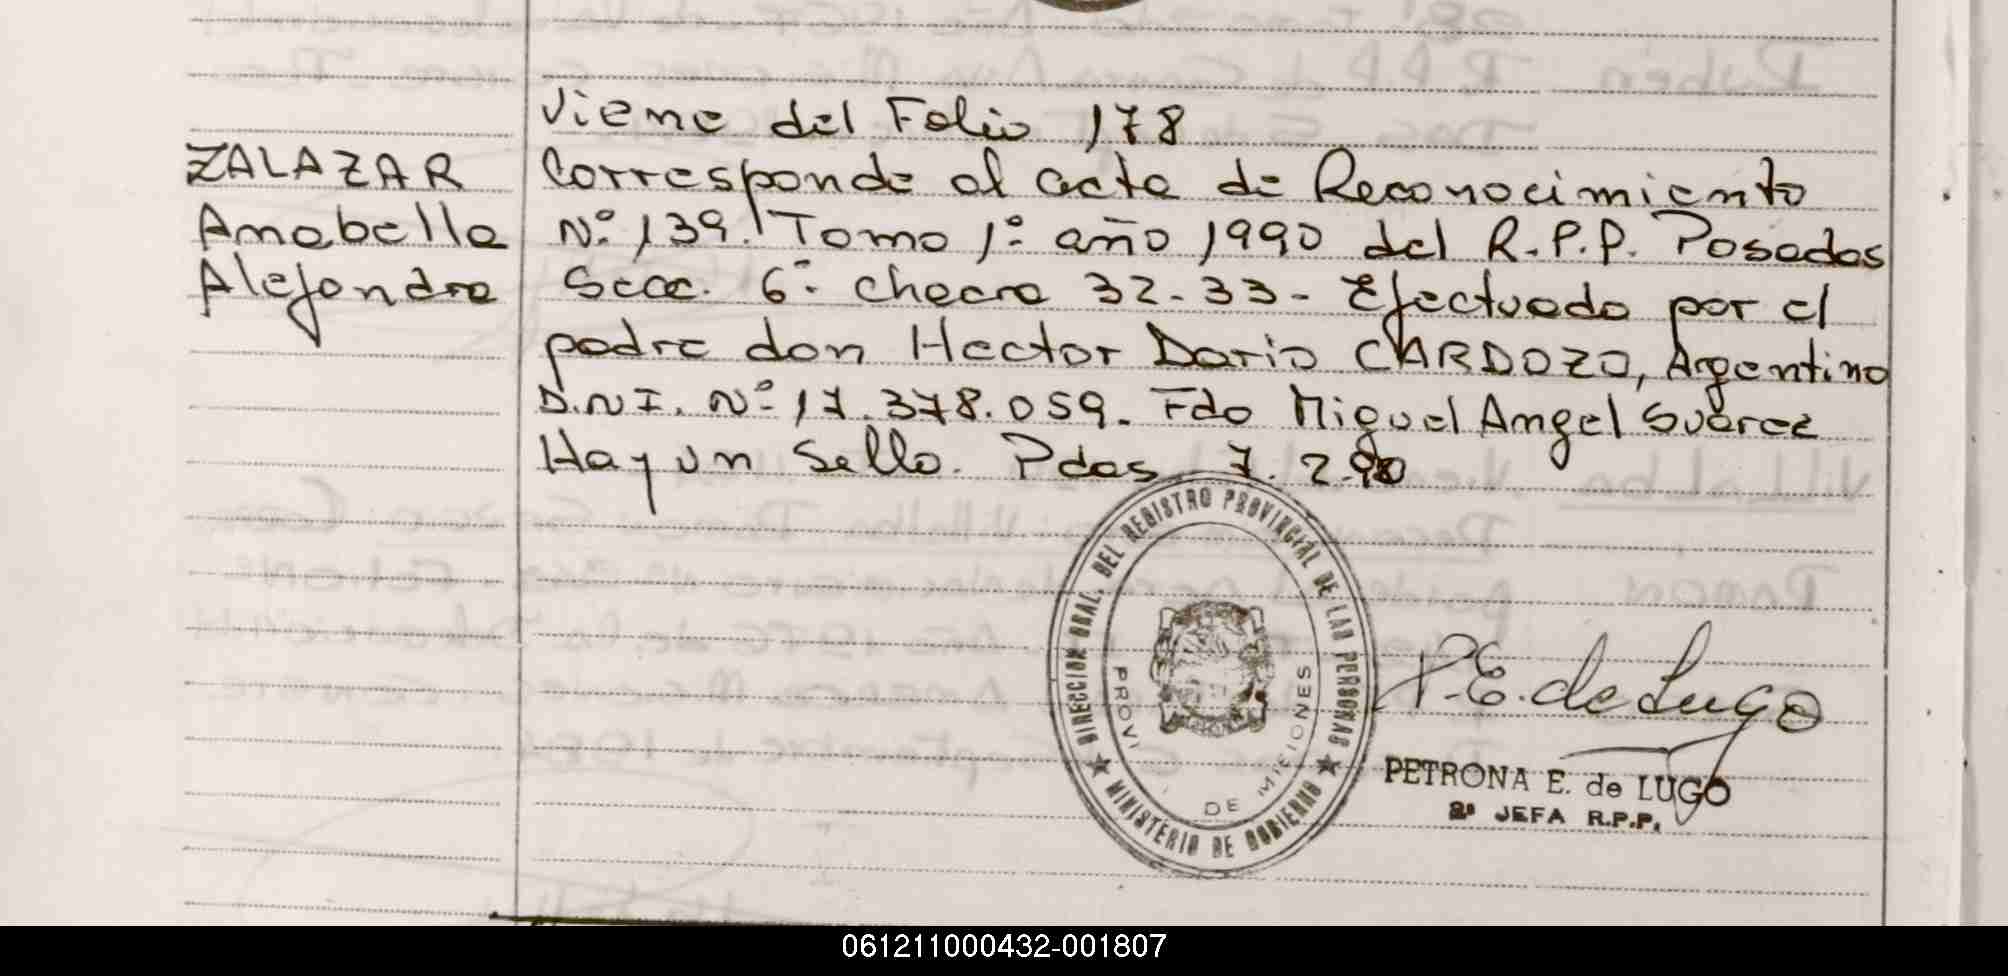 Viene del Folio 178
ZALAZAR
Anabella
Alejandra
Corresponde al acta de Reconocimiento
Nº 139. Tomo 1º año 1990 del R.P.P. Posadas
Secc. 6º chacra 32-33- Efectuado por el
padre don Hector Dario CARDOZO, Argentino
D.N.I. Nº 17.378.059. Fdo Miguel Angel Suarez
Hay un Sello. Pdas 7.2.90
DIRECCION GRAL. DEL REGISTRO PROVINCIAL DE LAS PERSONAS
PROVI DE MISIONES
★ MINISTERIO DE GOBIERNO ★
P.E. de Lugo
PETRONA E. de LUGO
2ª JEFA R.P.P.
061211000432-001807